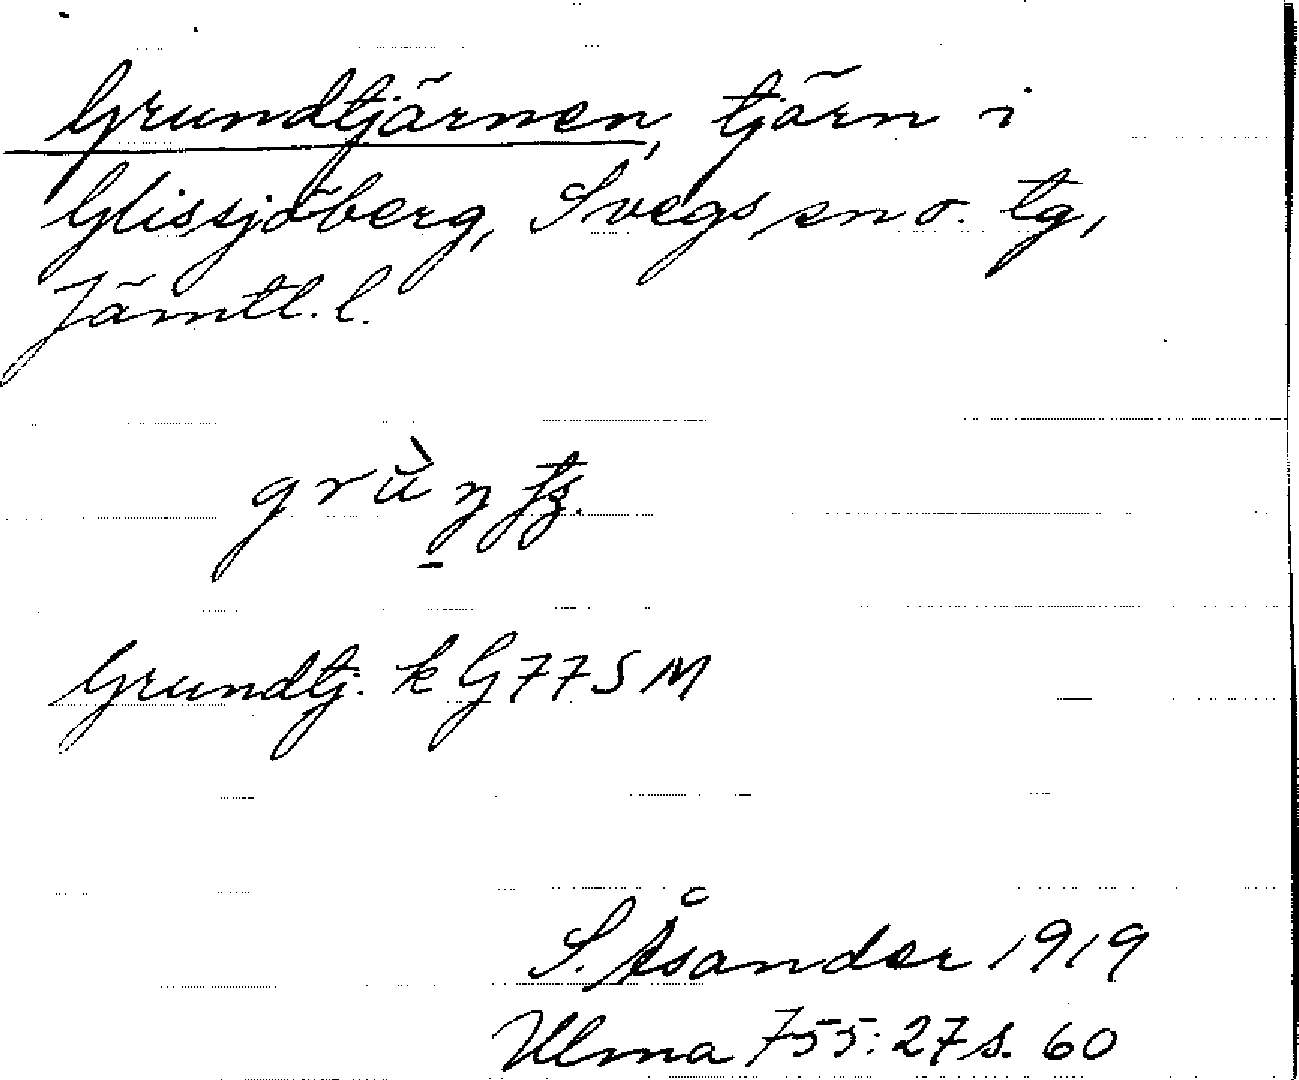 Grundtjärnen, tjärn i
Glissjöberg, Svegs sn o. tg,
Jämtl. l.
Grundtj. k G77SM
S. Åsander 1919
Ulma 755:27 s. 60